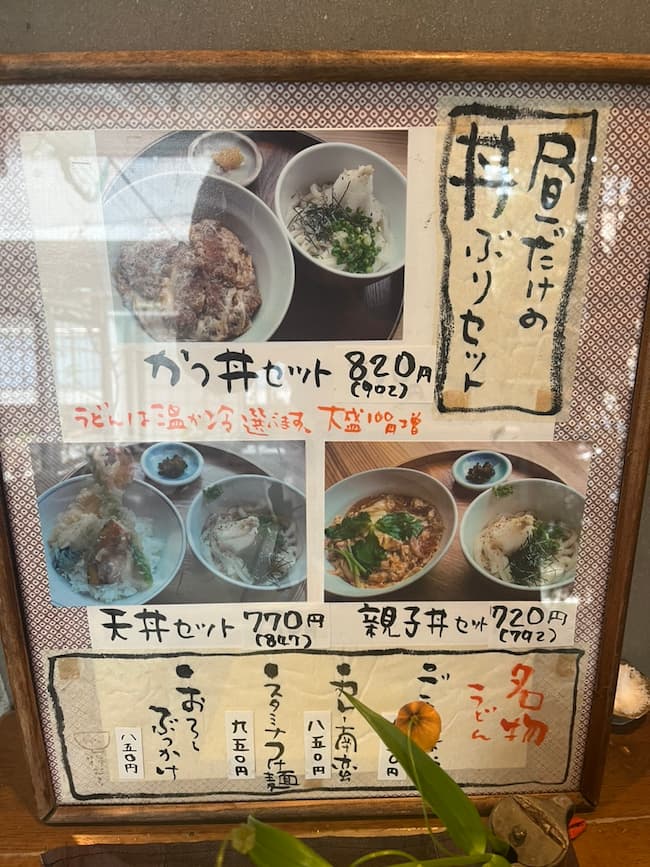 昼だけの
丼ぶりセット
かつ丼セット 820円
(902)
うどんは温か冷選べます、大盛100円増
天丼セット 770円
(847)
親子丼セット 720円
(792)
名物
うどん
カレー南蛮
八五〇円
スタミナつけ麺
九五〇円
おろし
ぶっかけ
八五〇円